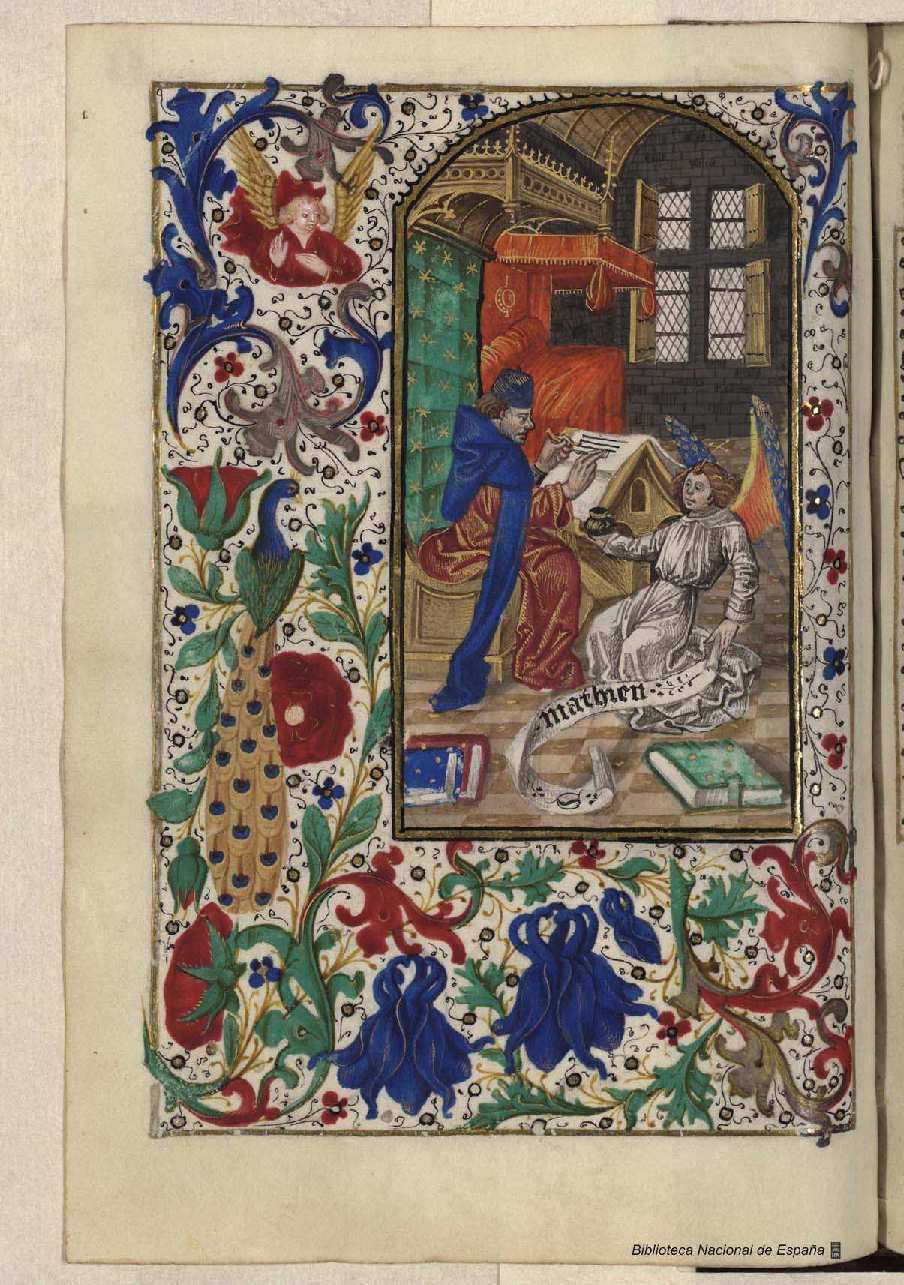 mathieu
Biblioteca Nacional de España